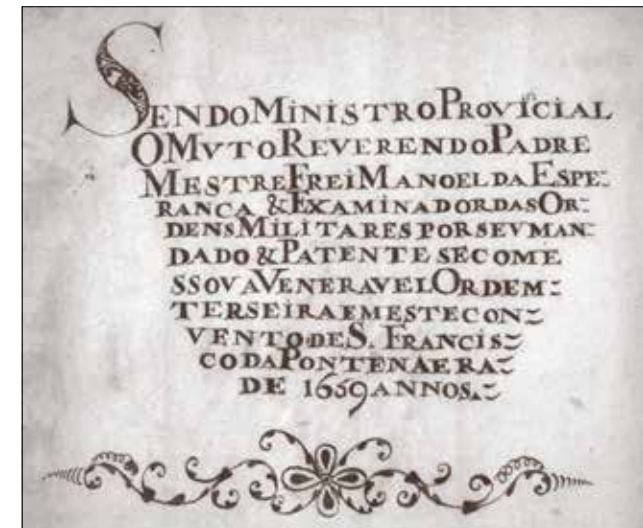 SENDO MINISTRO PROVICIAL
O MVTO REVERENDO PADRE
MESTRE FREI MANOEL DA ESPE:
RANCA & EXAMINADOR DAS OR:
DENS MILITARES POR SEV MAN:
DADO & PATENTE SE COME
SSOV A VENERAVEL ORDEM:
TERSEIRA EM ESTE CON:
VENTO DE S. FRANCIS:
CO DA PONTE NA ERA:
DE 1659 ANNOS.: